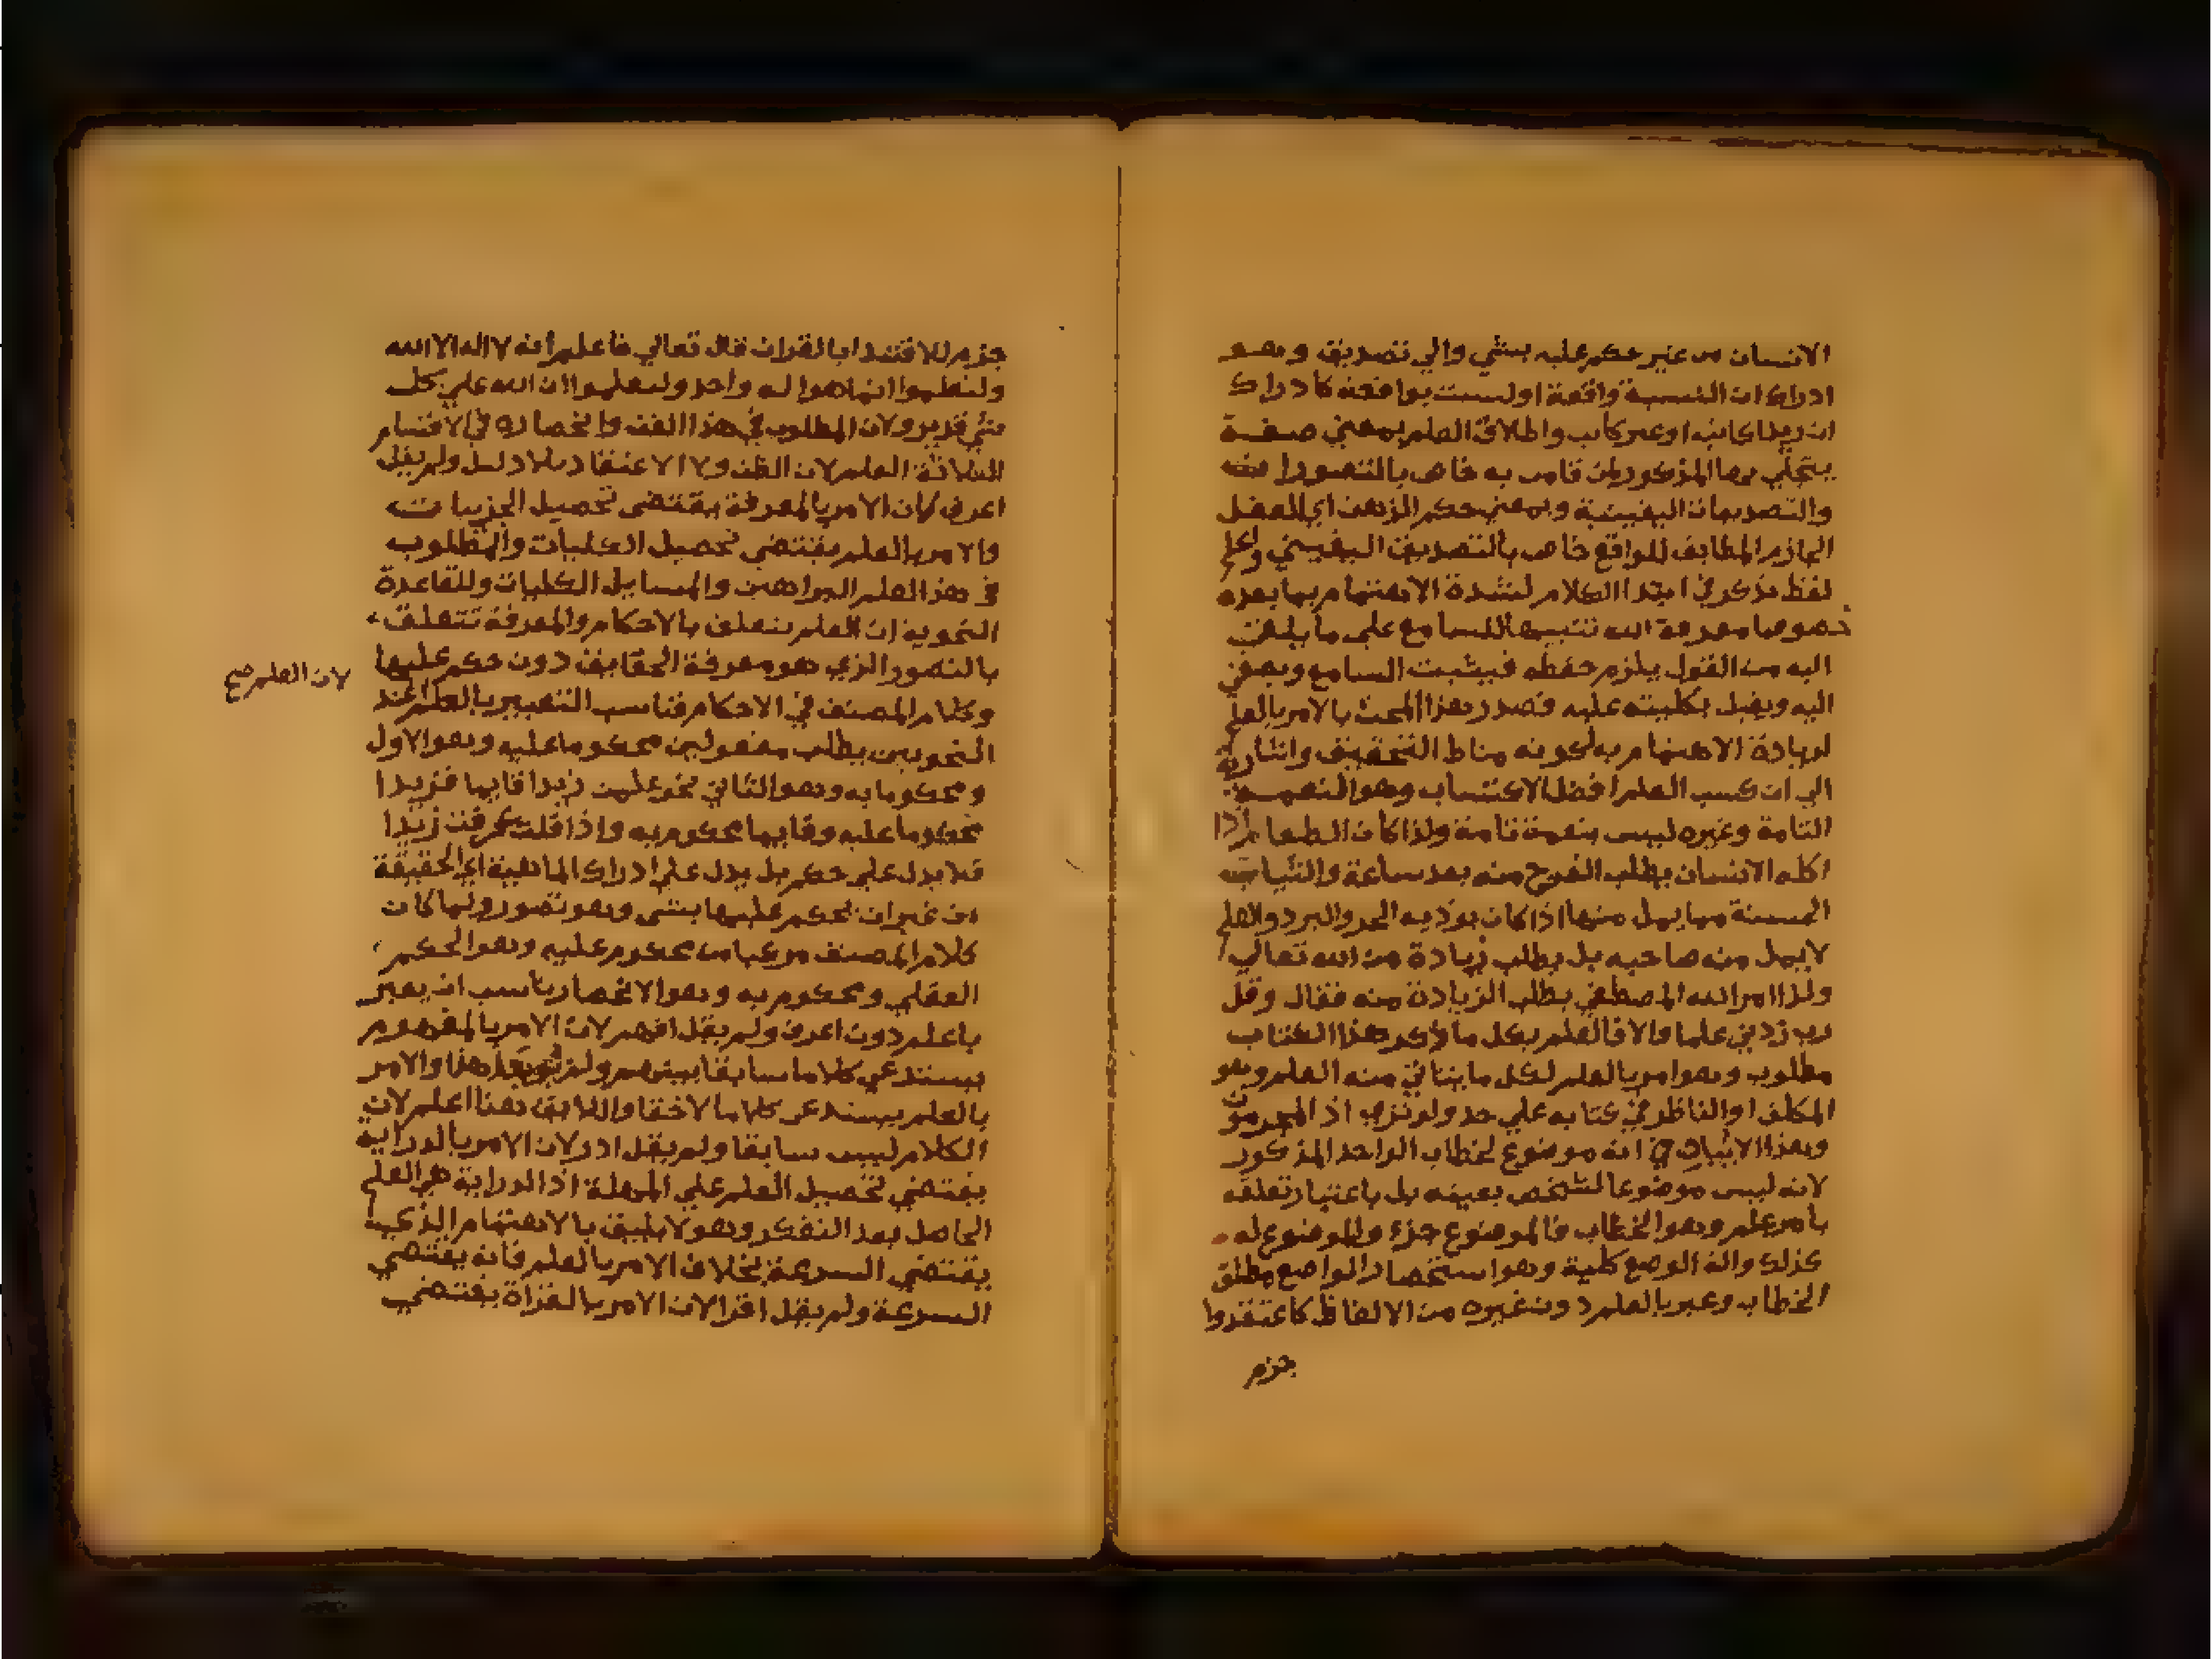 الانسان من غير حكم عليه بشي والي تصديق وهو
ادراك ان النسبة واقعة او ليست بواقعة كادراك
ان زيدا كاتب او غير كاتب واطلاق العلم بمعني صفة
يتجلي بها المذكور لمن قامت به خاص بالتصورات
والتصديقات اليقينية وبمعني حكم الذهن اي العقل
الجازم المطابق للواقع خاص بالتصديق اليقيني واعلم
لفظ يذكر في ابتدا الكلام لشدة الاهتمام بما بعده
خصوصا معرفة الله تنبيها للسامع علي ما يلقي
اليه من القول يلزم حفظه فيثبت السامع ويصغي
اليه ويقبل بكليته عليه فصدر هذا المبحث بالامر بالعلم
لزيادة الاهتمام به لكونه مناط التحقيق واشارة
الي ان كسب العلم افضل الاكتساب وهو النعمة
التامة وغيره ليس بنعمة تامة ولذا كان الطعام اذا
اكله الانسان يطلب الفرج منه بعد ساعة والثياب
الحسنة مما يمل منها اذا كان يوذيه الحر والبرد والعلم
لا يمل منه صاحبه بل يطلب زيادة من الله تعالي
ولذا امر الله المصطفي بطلب الزيادة منه فقال وقل
رب زدني علما والا فالعلم بكل ما ذكر هذا الكتاب
مطلوب وهو امر بالعلم لكل ما يتاتي منه العلم وهو
المكلف او الناظر في كتابه علي حد ولو تري اذ المجرمون
وهذا لا ينافي انه موضوع لخطاب الواحد المذكور
لانه ليس موضوعا لشخص بعينه بل باعتبار تعلقه
بامر علم وهو الخطاب فالموضوع جزء والموضوع له
كذلك والة الوضع كلية وهو استحضار الواضع مطلق
الخطاب وعبر بالعلم دون غيره من الالفاظ كاعتقدوا
جزم
جزم للاقتدا بالقران قال تعالي فاعلم أنه لا اله الا الله
وليعلموا انما هو اله واحد ولتعلموا ان الله علي كل
شي قدير ولان المطلوب في هذا الفن وانحصاره في الاقسام
الثلاثة العلم لان الظن ولا الاعتقاد بلا دليل ولم يقل
اعرف لان الامر بالمعرفة يقتضي تحصيل الجزييات
والامر بالعلم يقتضي تحصيل الكليات والمطلوب
في هذ العلم البراهين والمسايل الكليات وللقاعدة
النحوية ان العلم يتعلق بالاحكام والمعرفة تتعلق
بالتصور الذي هو معرفة الحقايق دون حكم عليها
لان العلم صح
وكلام المصنف في الاحكام فناسب التعبير بالعلم عند
النحويين يطلب مفعولين محكوما عليه وهو الاول
ومحكوما به وهو الثاني نحو علمت زيدا قايما فزيدا
محكوما عليه وقايما محكوم به واذا قلت عرفت زيدا
فلا يدل علي حكم بل يدل علي ادراك الماهية اي الحقيقة
من غير ان تحكم عليها بشي وهو تصور ولما كان
كلام المصنف مركبا من محكوم عليه وهو الحكم
العقلي ومحكوم به وهو الانحصار ناسب ان يعبر
باعلم دون اعرف ولم يقل افهم لان الامر بالمفهوم
يستدعي كلاما سابقا يفهم ولم هذا والامر
بالعلم يستدعي كلاما لاحقا واللايق هنا اعلم لان
الكلام ليس سابقا ولم يقل ادر لان الامر بالدراية
يقتضي تحصيل العلم علي المهلة اذ الدراية هي العلم
الحاصل بعد التفكر وهو لا يليق بالاهتمام الذي
يقتضي السرعة بخلاف الامر بالعلم فانه يقتضي
السرعة ولم يقل اقرا لان الامر بالقراة يقتضي